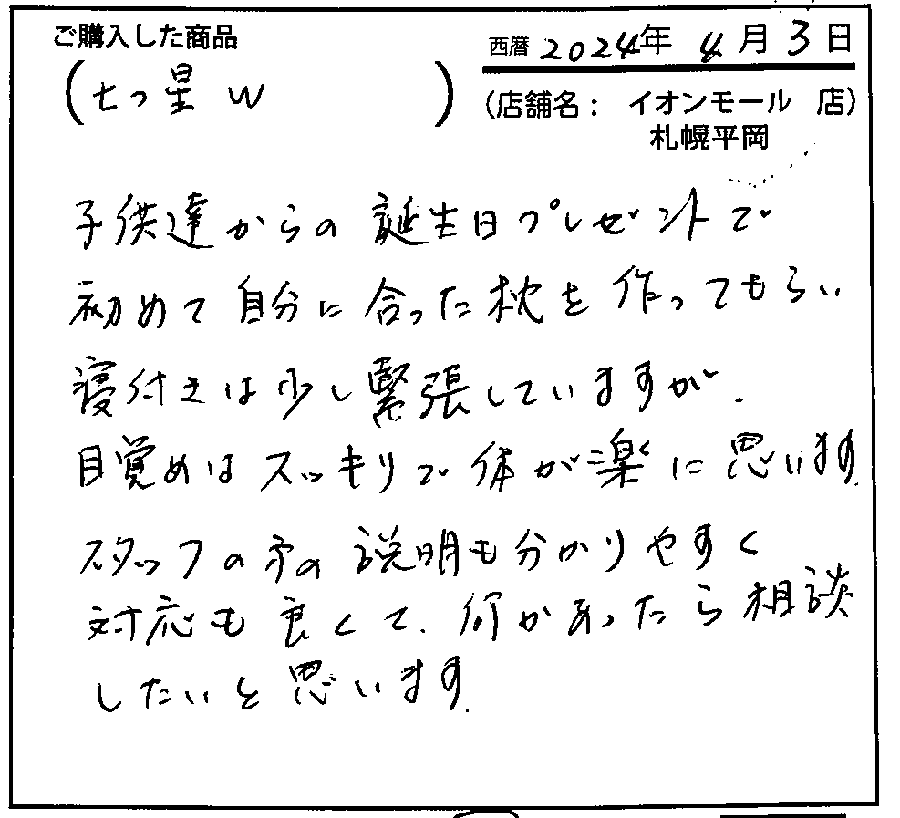 ご購入した商品
(七つ星 W)
西暦 2024年 4月 3日
(店舗名: イオンモール 店)
札幌平岡
子供達からの 誕生日プレゼントで
初めて 自分に 合った枕を 作ってもらい
寝付きは少し緊張していますが、
目覚めは スッキリで 体が楽に 思います。
スタッフの方の 説明も分かりやすく
対応も 良くて、何かあったら相談
したいと 思います。